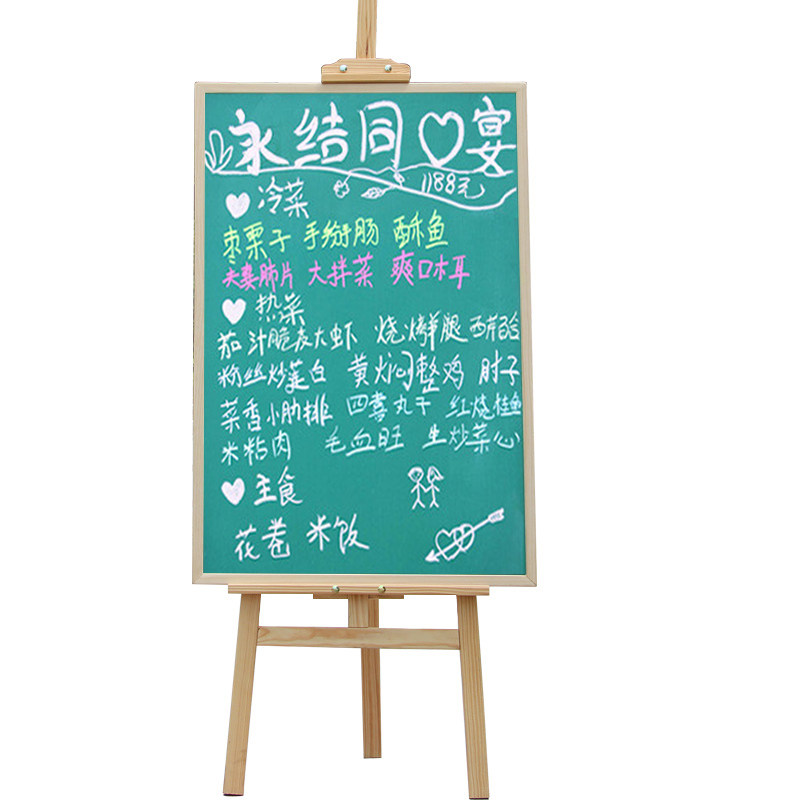 永结同♡宴
1188元
冷菜
枣栗子 手掰肠 酥鱼
夫妻肺片 大拌菜 爽口木耳
热菜
茄汁脆皮大虾 烧烤羊腿 西芹百合
粉丝炒蛋白 黄焖整鸡 肘子
菜香小肋排 四喜丸子 红烧桂鱼
米粘肉 毛血旺 生炒菜心
主食
花卷 米饭